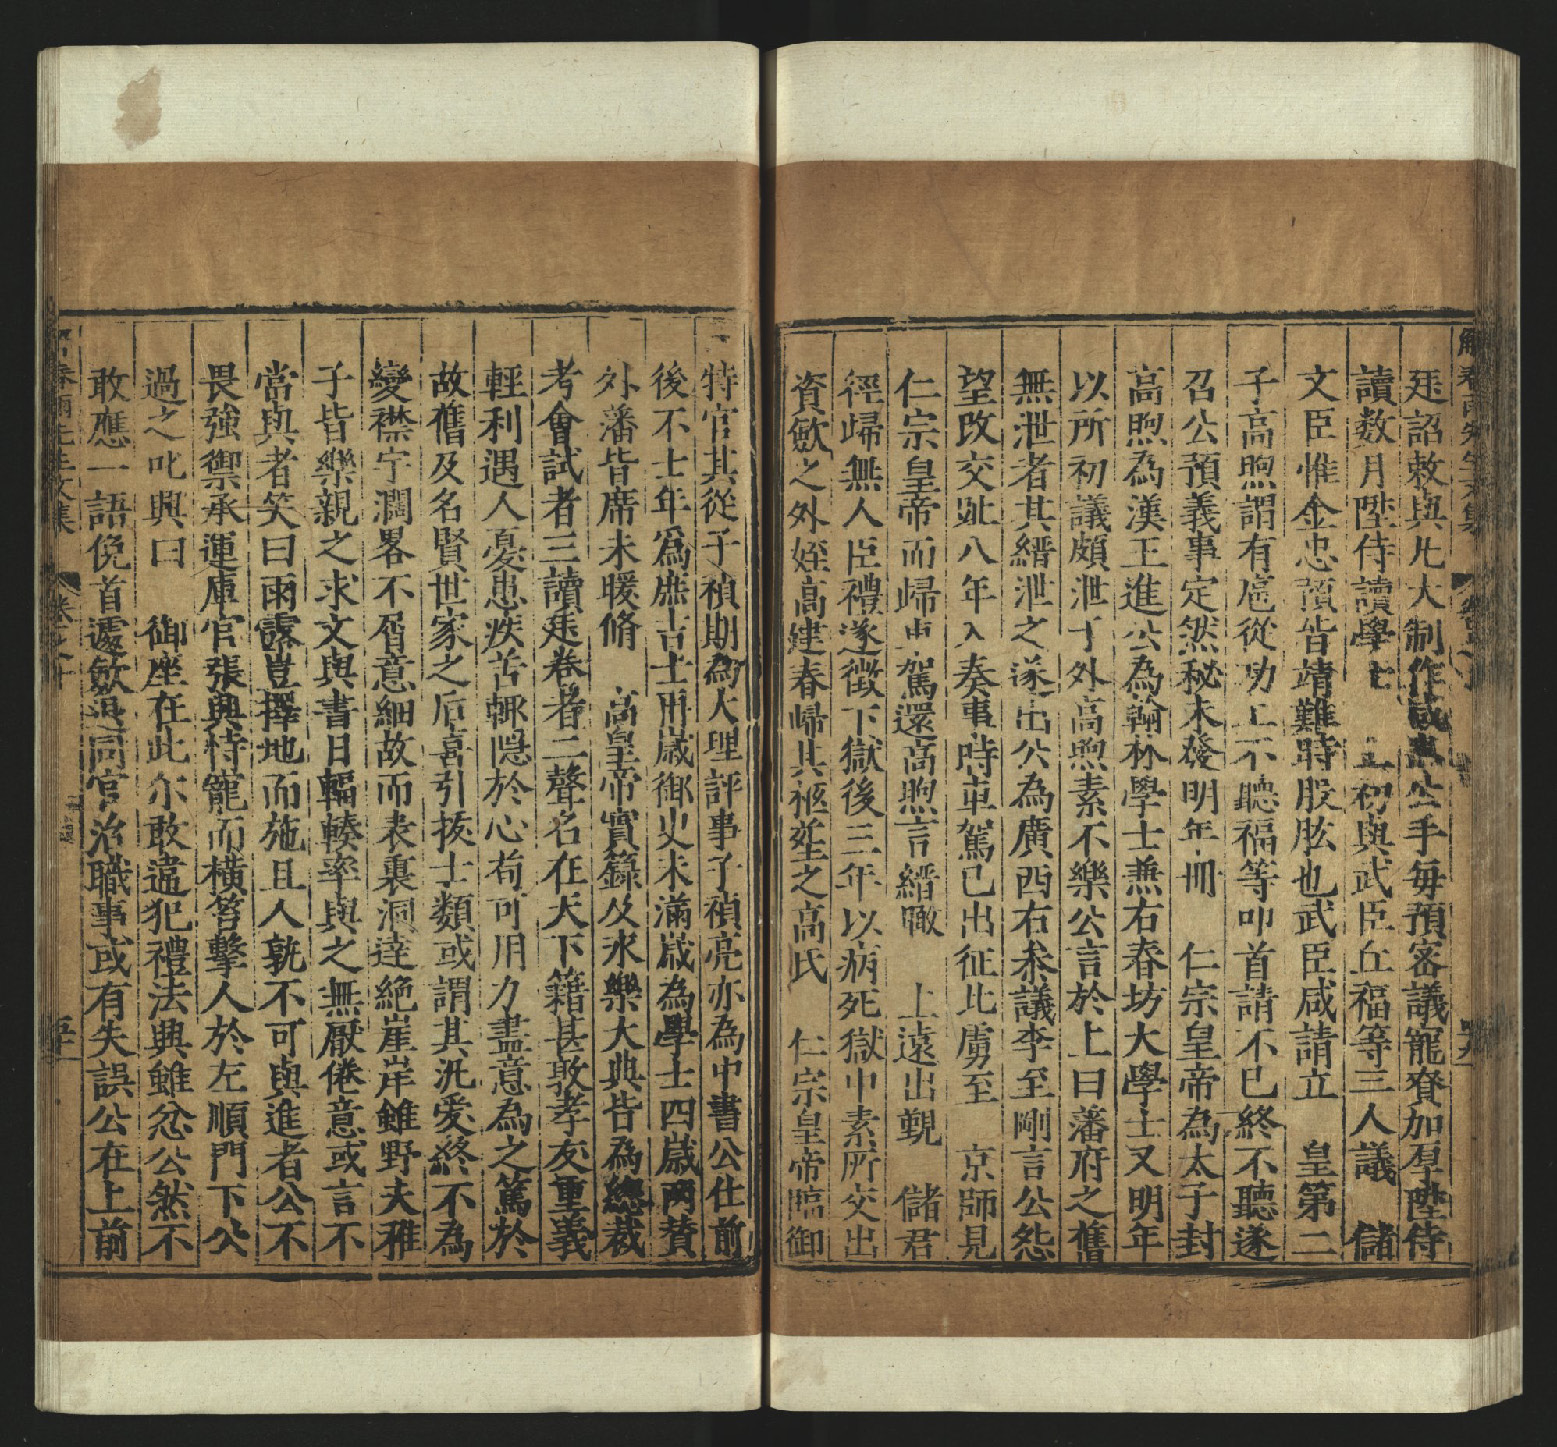 廷詔敕與凡大制作咸出公手每預密議寵賚加厚陞侍
讀数月陞侍讀學士 上初與武臣丘福等三人議 儲
文臣惟金忠預皆靖難時股肱也武臣咸請立 皇第二
子高煦謂有扈從功上不聽福等叩首請不已終不聽遂
召公預義事定然秘未發明年冊 仁宗皇帝為太子封
高煦為漢王進公為翰林學士兼右春坊大學士又明年
以所初議頗泄于外高煦素不樂公言於上曰藩府之舊
無泄者其縉泄之遂出公為廣西右叅議李至剛言公怨
望改交趾八年入奏事時車駕已出征北虜至 京師見
仁宗皇帝而歸車駕還高煦言縉瞰 上遠出覲 儲君
徑歸無人臣禮遂徵下獄後三年以病死獄中素所交出
資歛之外姪高建春歸其柩葬之高氏 仁宗皇帝臨御
特官其從子禎期為大理評事子禎亮亦為中書公仕前
後不七年為庶吉士冊歲御史未滿歲為學士四歲兩賛
外藩皆席未暖脩 高皇帝實錄及永樂大典皆為總裁
考會試者三讀廷卷者二聲名在天下籍甚敦孝友重義
輕利遇人憂患疾苦輙隠於心苟可用力盡意為之篤於
故舊及名賢世家之后喜引拔士類或謂其汎愛終不為
變襟宇濶畧不屑意細故而表裏洞達絶崖岸雖野夫稚
子皆樂親之求文與書日輻輳率與之無厭倦意或言不
當與者笑曰雨露豈擇地而施且人孰不可與進者公不
畏強御承運庫官張興恃寵而橫笞擊人於左順門下公
過之叱興曰 御座在此尔敢違犯禮法興雖忿公然不
敢應一語俛首遽歛退同官治職事或有失誤公在上前
解春雨先生文集 卷之十